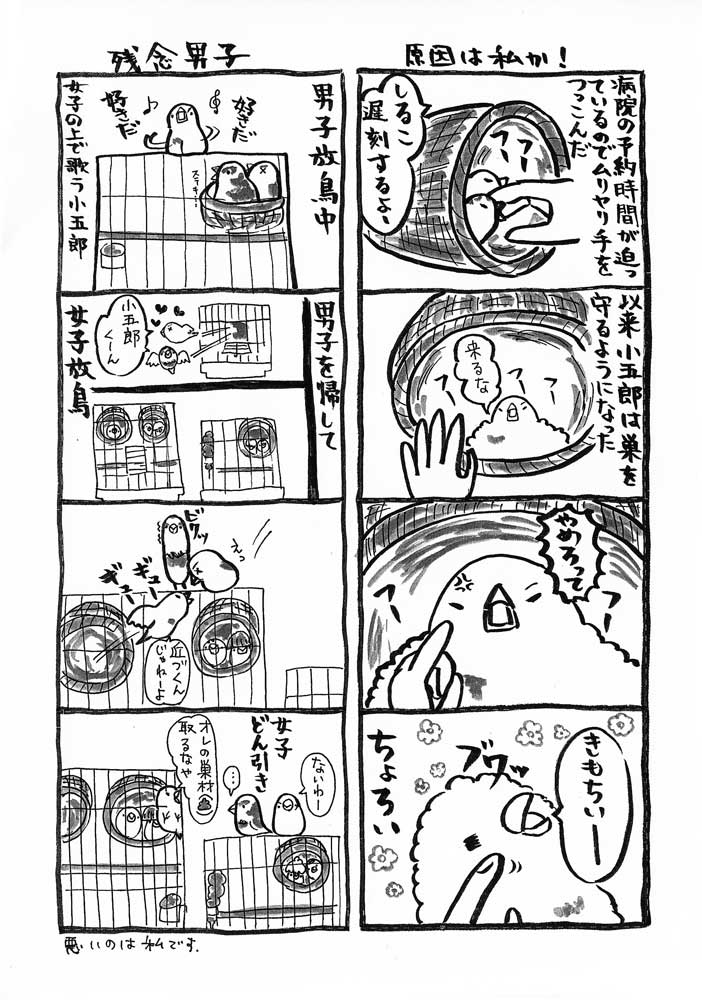 原因は私か！
病院の予約時間が迫っ
ているのでムリヤリ手を
つっこんだ
しるこ
遅刻するよ、
フー
フー
以来 小五郎は巣を
守るようになった
来るな
フー
フー
やめろって
フー
フー
きもちぃー
ブワッ
ちょろい
残念男子
男子放鳥中
好きだ
好きだ
女子の上で歌う小五郎
男子を帰して
女子放鳥
小五郎
くーん
ビクッ
えっ
ギュー
ギュー
近づくん
じゃねーよ
女子
どん引き
ないわー
…
オレの巣材
取るなや
悪いのは私です.